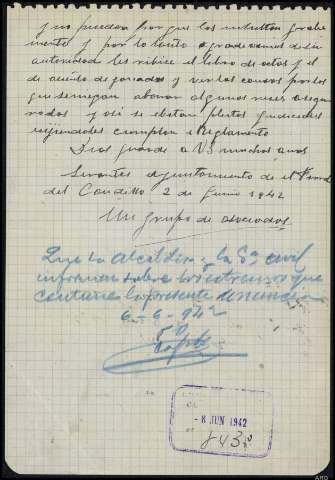 y no puedan por que los
mento y por lo tanto agradecemos de su
autoridad les rebice el libro de actas y el
de acuso de ganados y ver las causas por las
que se negan abonar algunos reses asegu
rados y asi se ebitan pleitos judiciales
cumplan el Reglamento
Dios guarde a VS muchos años
Serantes ayuntamiento de el Ferrol
del Caudillo 2 de Junio 1942
Un grupo de asociados
Que la Alcaldía y la Gª civil
informen sobre los extremos que
contiene la presente denuncia
6-6-942
- 8 JUN 1942
843